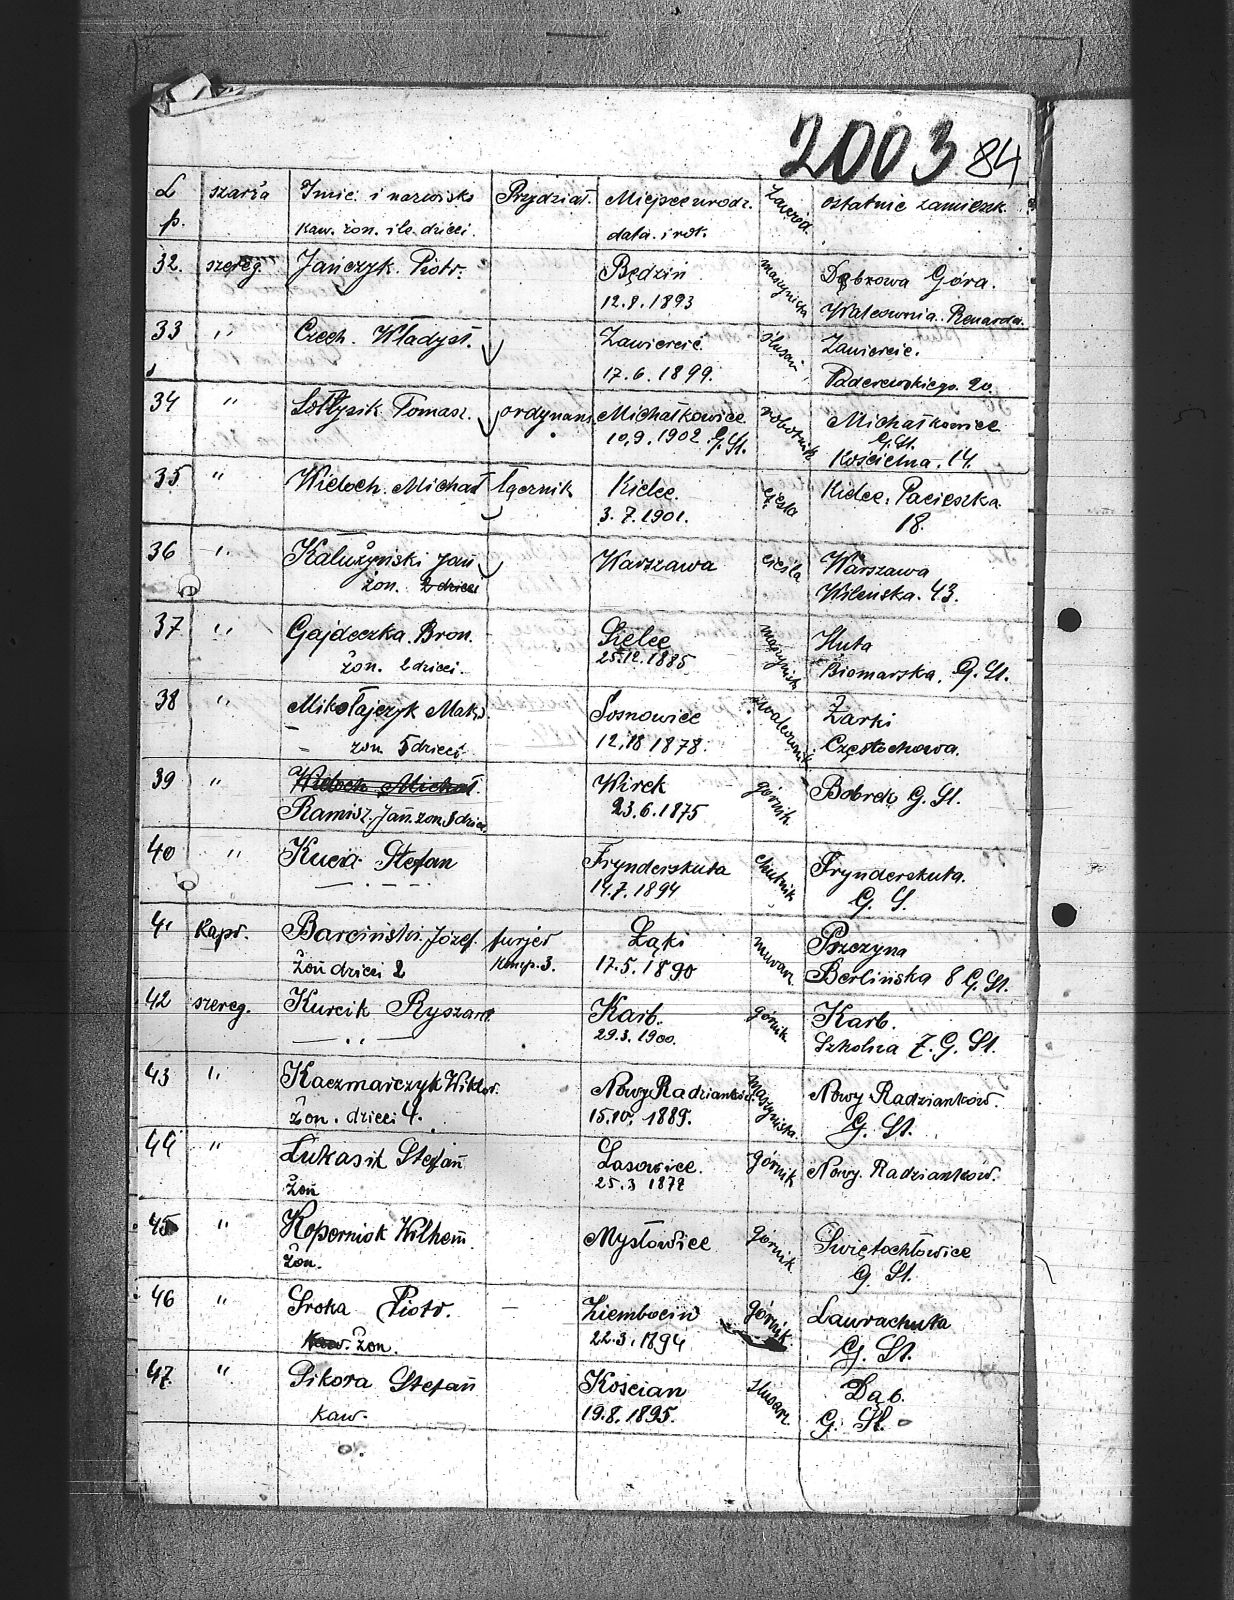 2003 84
L p. szarża Imię i nazwisko kaw. żon. ilo. dzieci. Przydział. Miejsce urodz. data i rok. Zawód ostatnie zamieszk.
32. szereg. Jańczyk. Piotr. Będzin maszynista Dąbrowa Góra.
12.8.1893 Walcownia. Renarda.
33 " Czech. Władysł. Zawiercie. ślusarz Zawiercie.
17.6.1899. Paderewskiego. 20.
34 " Sołtysik Tomasz. ordynans. Michałkowice robotnik Michałkowice
10.9.1902 G. Śl. G. Śl.
Kościelna. 14.
35. " Wieloch. Michał łącznik Kielce. cieśla Kielce. Pacieszka
3.7.1901. 18.
36 " Kałużyński Jan Warszawa cieśla Warszawa
żon. 2 dzieci Wileńska. 43.
37 " Gajdeczka. Bron. maszynista Huta
żon. 2 dzieci. 25.12.1885 G. Śl.
38 " Mikołajczyk Maks. Sosnowiec Żarki
żon 5 dzieci. 12.18 1878. Częstochowa.
39 " Wieloch Michał. Wirek górnik. Bobrek G. Śl.
Ramisz. Jan. żon 3 dzieci 23.6.1875
40 " Kucia Stefan Frynderskuta Frynderskuta.
14.7.1894 G. S.
41 Kapr. Barciński. Józef. furjer Łąki murarz Pszczyna
żon dzieci 2 Komp. 3. 17.5.1890 Berlińska 8 G. Śl.
42 szereg. Kurcik Ryszard Karb. górnik Karb.
29.3.1900. Szkolna 7. G. Śl.
43 " Kaczmarczyk Wiktor. Nowy Radzianków. maszynista. Nowy Radzianków.
żon. dzieci 4. 15.10.1889. G. Śl.
44 " Łukasik Stefan Lasowice. górnik Nowy. Radzianków.
żon 25.3 1878
45 " Koperniok Wilhem Mysłowice górnik Świętochłowice
żon. G Śl.
46 " Sroka Piotr. – Ziembocin górnik. Laurachuta
kaw. żon. 22.3.1894 G. Śl.
47. " Sikora Stefan Kościan ślusarz Dąb.
kaw. 19.8.1895. G. Śl.